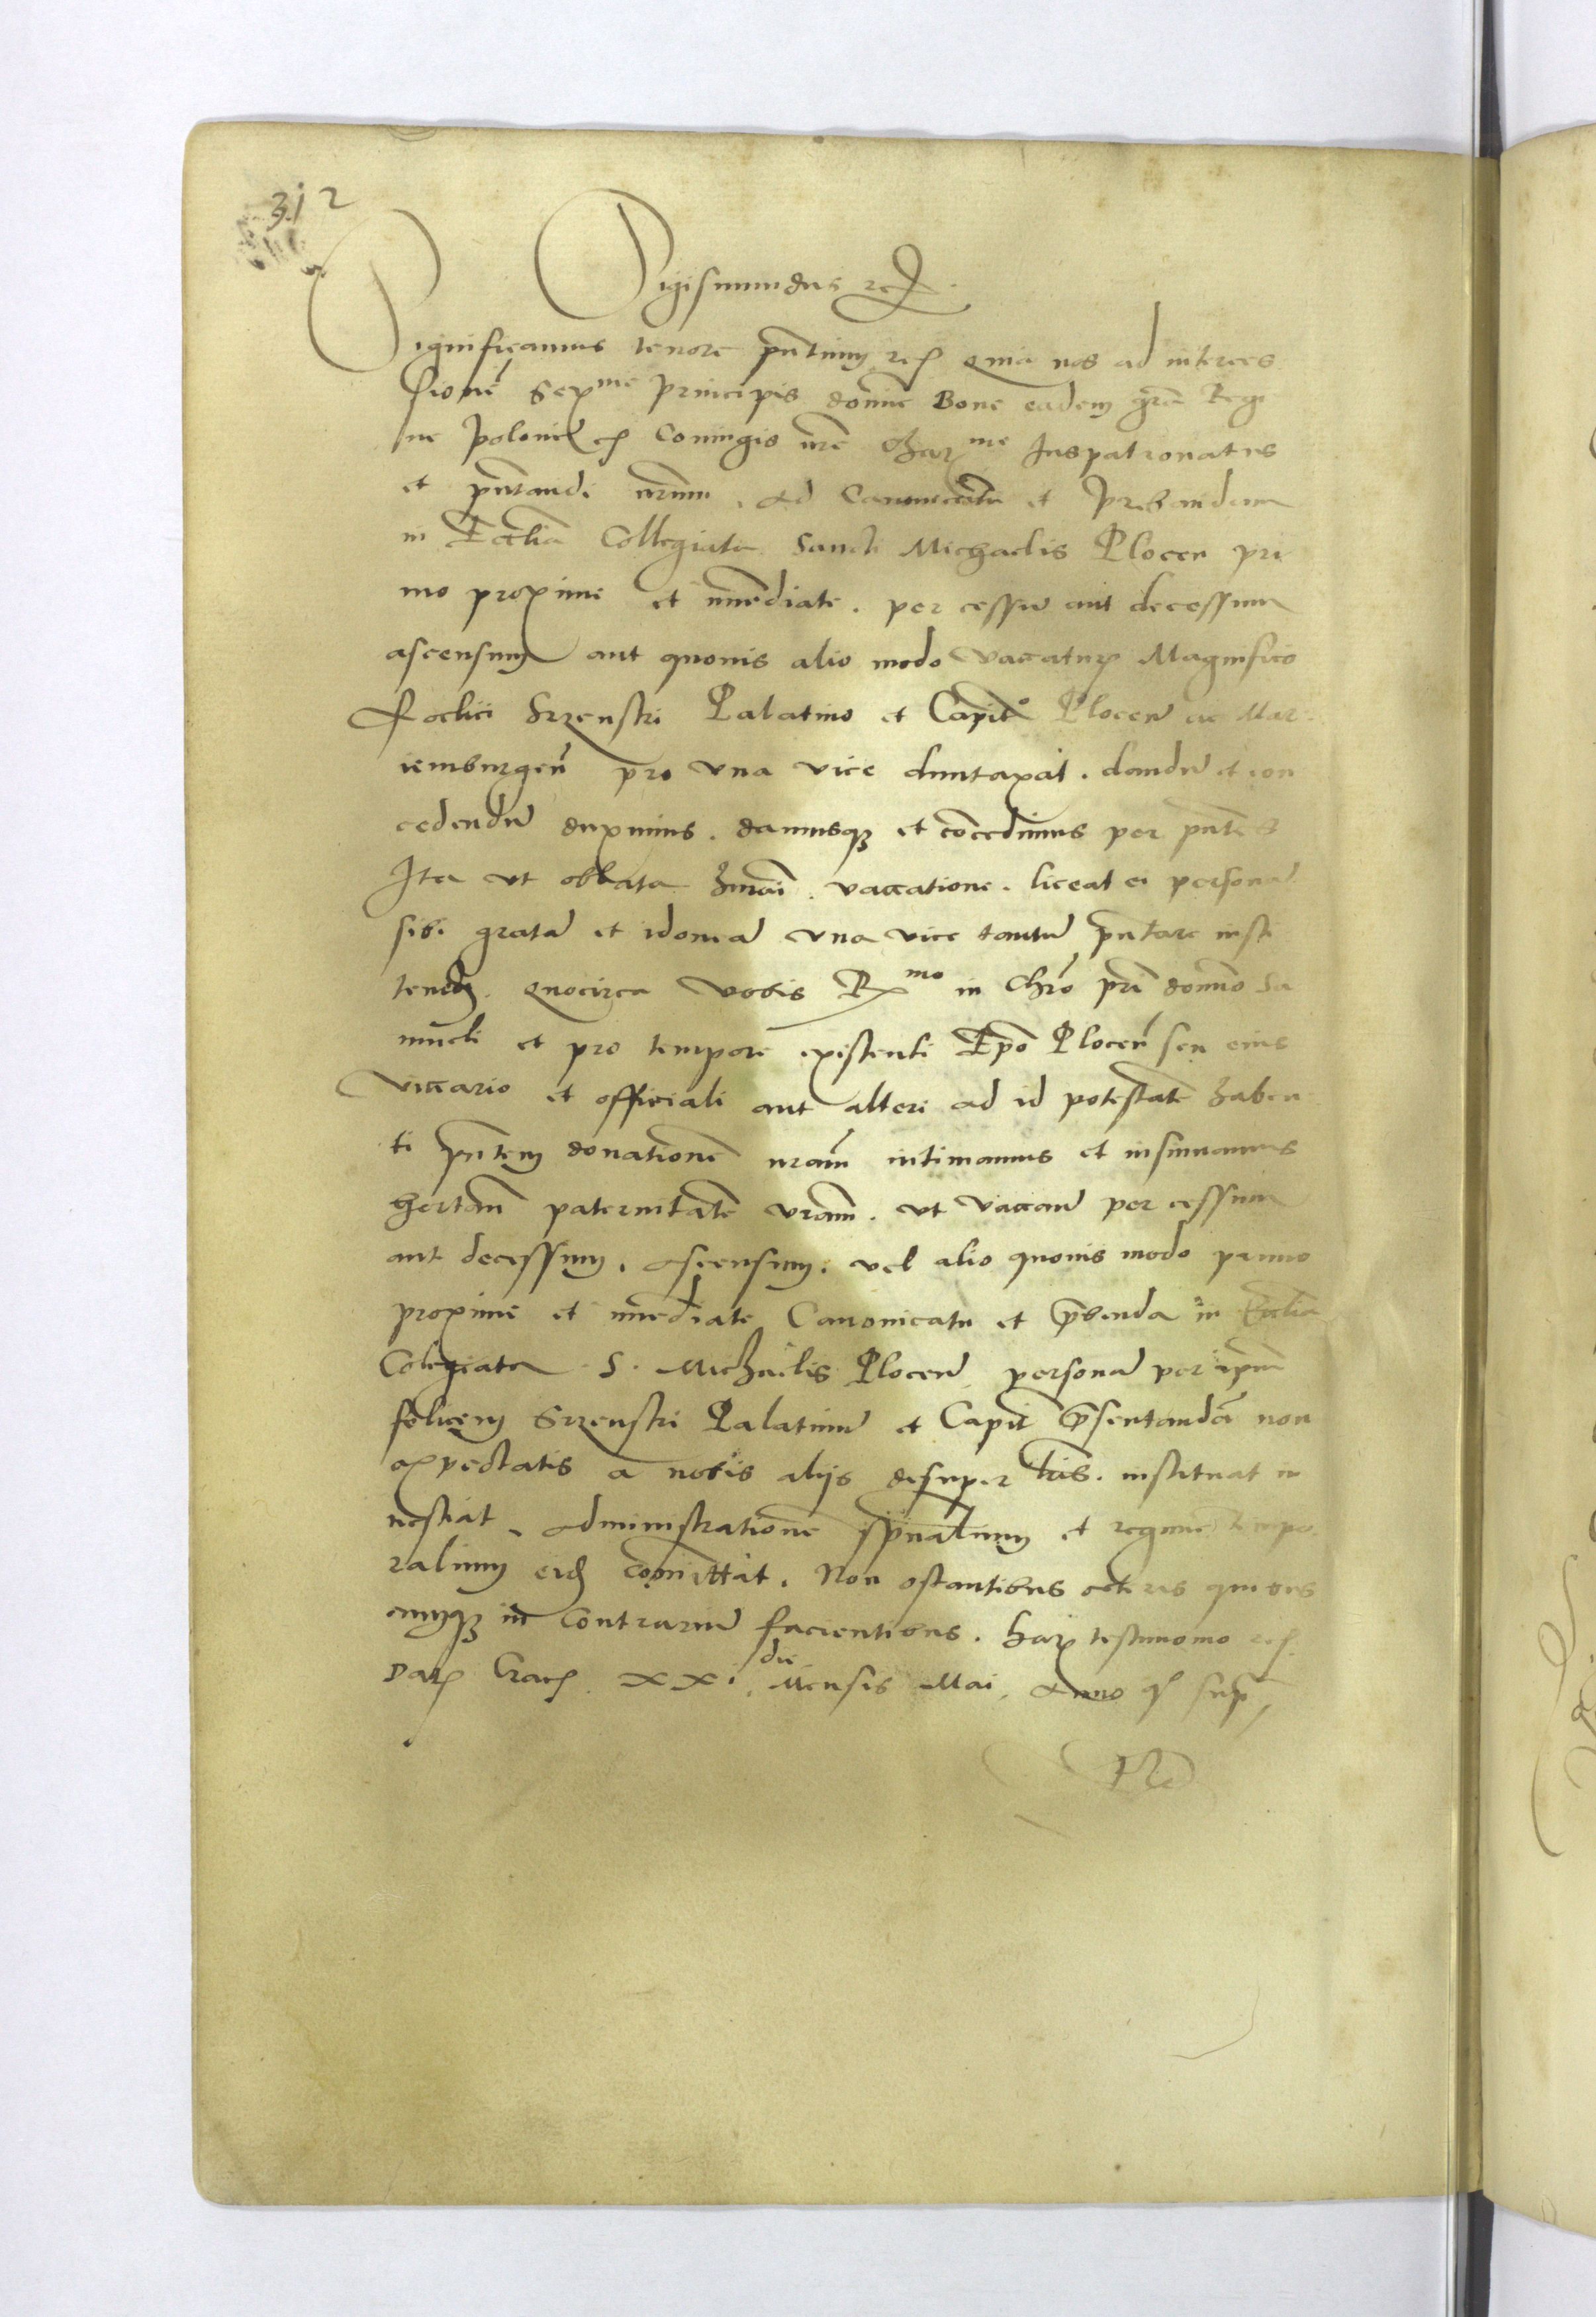 312
Sigismundus etc.
Significamus tenore pntium etc. quia nos ad interces
sionē Serme Principis domīe Bone eadem grā Regi
ne Polonie etc. Coniugis nrē Charme Iuspatronatus
et pntandi nrum, ad Canonicatū et Prebendam
in Ecclīa Collegiata Sancti Michaelis Plocen pri
mo proxime et imediate. per cessū aut decessum
ascensum aut quouis alio modo vaccatur Magnifico
Foelici Srzenski Palatino et Capito Plocen ac Mar
iemburgeñ pro vna vice duntaxat. dandū et con
cedendū duximus. damusqz et concedimus per pntes
Ita vt oblata hmōi vaccatione. liceat ei personā
sibi gratā et idoneā vna vice tantū pntare insti
tuend. Quocirca vobis Rmo in Chrō pri domīo Sa
mueli et pro tempore existenti Epō Ploceñ seu eius
viccario et officiali aut alteri ad id potestatē haben
ti pntem donationē nram intimamus et insinuamus
hortam paternitatē vram. vt vaccan per cessum
aut decessum. ascensum. vel alio quouis modo primo
proxime et imediate Canonicatu et prbenda in Ecclīa
Colegiata S. Michaelis Plocen personā per ipm
felicem Srzenski Palatinū et Capit prsentandā non
expectatis a nobis alijs desuper lris. instituat in
uestiat, administrationē spūalium et regimē tempo
ralium eid comittat. Non ostantibus ceteris quibus
cumqz in contrariū facientibus. Har testimonio etc.
Dat Crac. XXI die Mensis Mai, Anno q supr